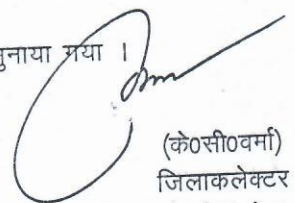 सुनाया गया ।
(के0सी0वर्मा)
जिलाकलेक्टर